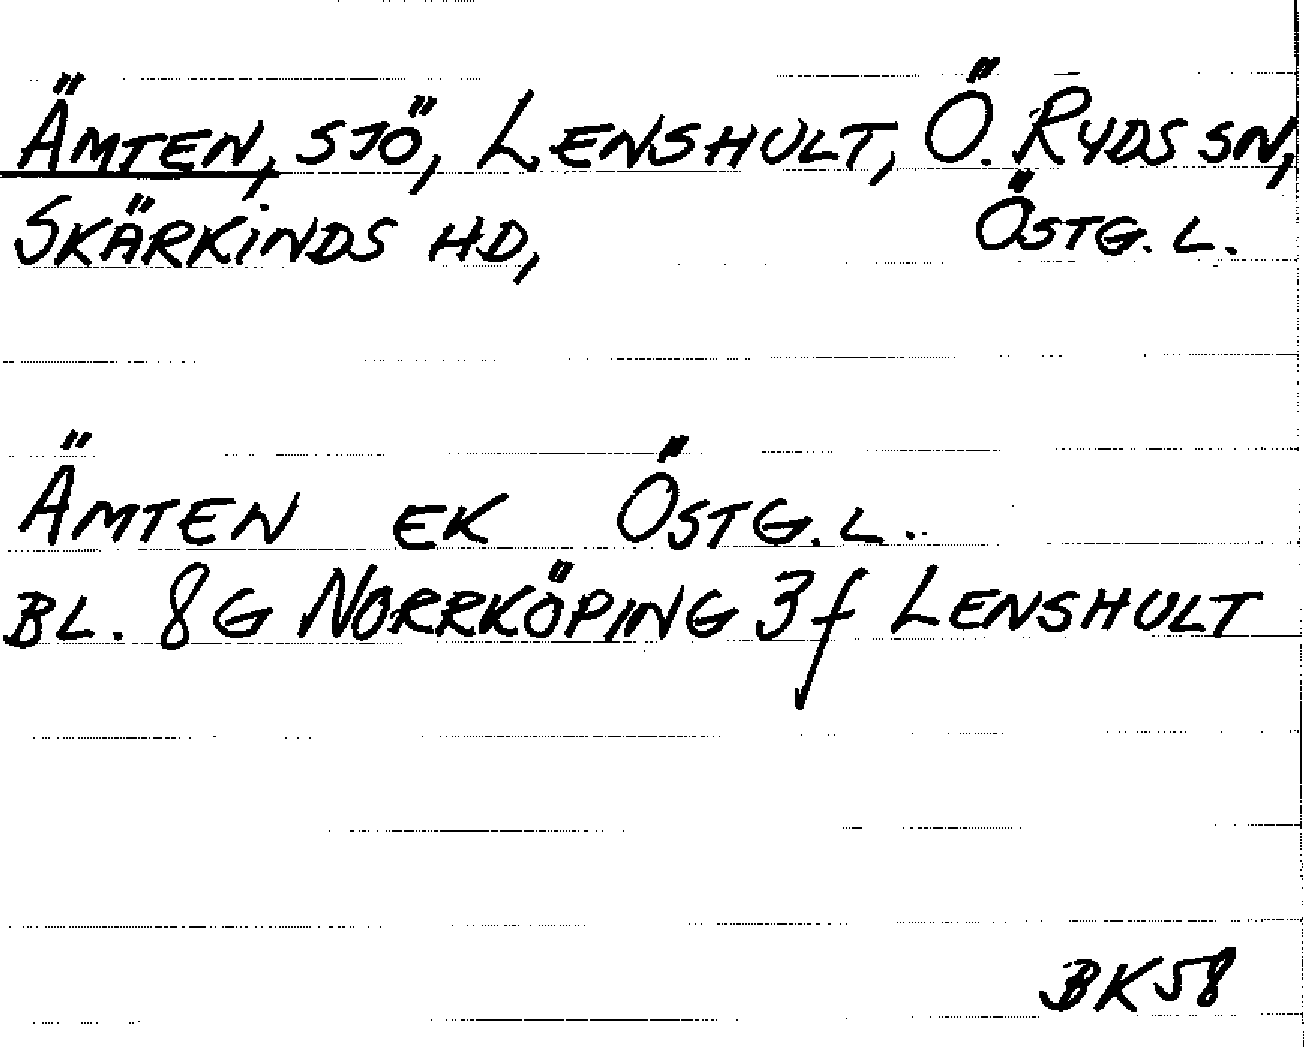 ÄMTEN, SJÖ, LENSHULT, Ö. RYDS SN,
SKÄRKINDS HD, ÖSTG. L.
ÄMTEN EK ÖSTG. L.
BL. 8G NORRKÖPING 3f LENSHULT
BK58